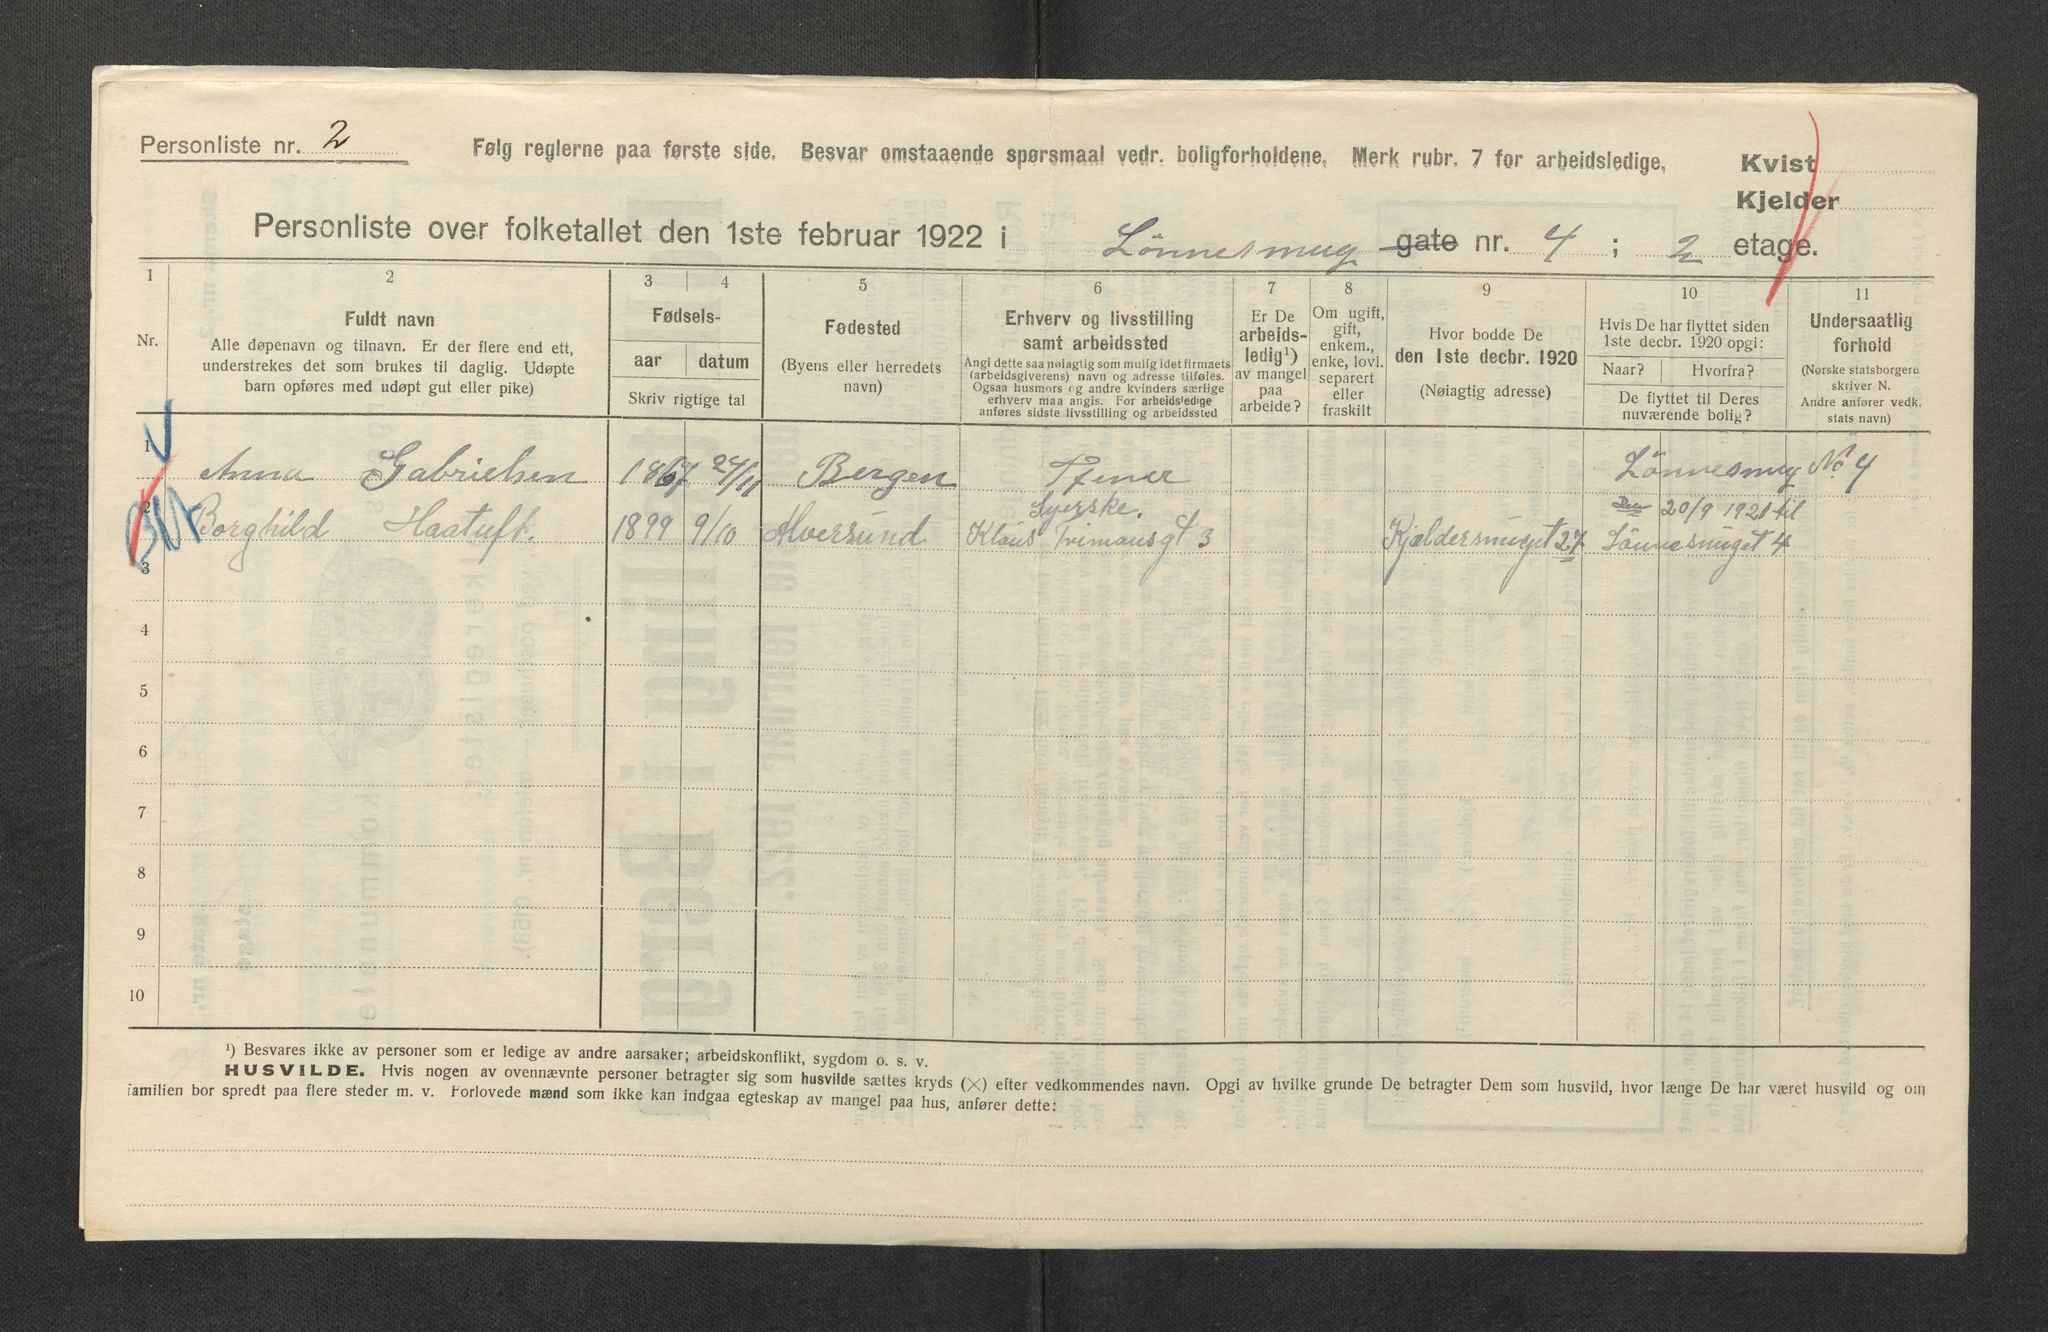 Personliste nr. 2
Følg reglerne paa første side. Besvar omstaaende spørsmaal vedr. boligforholdene. Merk rubr. 7 for arbeidsledige.
Kvist
Kjelder
Personliste over folketallet den 1ste februar 1922 i Lønnesmug gate nr. 4 ; 2 etage.
1 2 3 4 5 6 7 8 9 10 11
Nr.
Fuldt navn
Alle døpenavn og tilnavn. Er der flere end ett,
understrekes det som brukes til daglig. Udøpte
barn opføres med udøpt gut eller pike)
Fødsels-
aar datum
Skriv rigtige tal
Fødested
(Byens eller herredets
navn)
Erhverv og livsstilling
samt arbeidssted
Angi dette saa nøiagtig som mulig idet firmaets
(arbeidsgiverens) navn og adresse tilføies.
Ogsaa husmors og andre kvinders særlige
erhverv maa angis. For arbeidsledige
anføres sidste livsstilling og arbeidssted
Er De
arbeids-
ledig¹)
av mangel
paa
arbeide?
Om ugift,
gift,
enkem.,
enke, lovl.
separert
eller
fraskilt
Hvor bodde De
den 1ste decbr. 1920
(Nøiagtig adresse)
Hvis De har flyttet siden
1ste decbr. 1920 opgi:
Naar? Hvorfra?
De flyttet til Deres
nuværende bolig?
Undersaatlig
forhold
(Norske statsborgere
skriver N.
Andre anfører vedk.
stats navn)
1 Anna Gabrielsen 1867 24/11 Bergen Tjener Lønnesmug No 4
Syerske. Den 20/9 1921 til
2 Borghild Haatuft. 1899 9/10 Alversund Klaus gt 3 Kjældersmuget 27 Lønnesmuget 4
3
4
5
6
7
8
9
10
¹) Besvares ikke av personer som er ledige av andre aarsaker; arbeidskonflikt, sygdom o. s. v.
HUSVILDE. Hvis nogen av ovennævnte personer betragter sig som husvilde sættes kryds (×) efter vedkommendes navn. Opgi av hvilke grunde De betragter Dem som husvild, hvor længe De har været husvild og om
familien bor spredt paa flere steder m. v. Forlovede mænd som ikke kan indgaa egteskap av mangel paa hus, anfører dette: